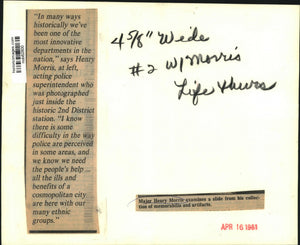 "In many ways
historically we've
been one of the
most innovative
departments in the
nation," says Henry
Morris, at left,
acting police
superintendent who
was photographed
just inside the
historic 2nd District
station. "I know
there is some
difficulty in the way
police are perceived
in some areas, and
we know we need
the people's help ...
all the ills and
benefits of a
cosmopolitan city
are here with our
many ethnic
groups."
4 5/8" Wide
#2 W/Morris
Life Thurs
Major Henry Morris examines a slide from his collec-
tion of memorabilia and artifacts.
APR 16 1981